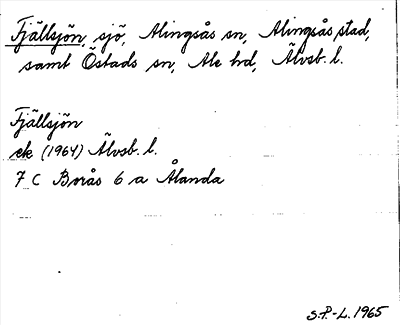 Fjällsjön, sjö, Alingsås sn, Alingsås stad,
samt Östads sn, Ale hd, Älvsb. l.
Fjällsjön
ek (1964) Älvsb. l.
7 C Borås 6 a Ålanda
S.P.-L. 1965